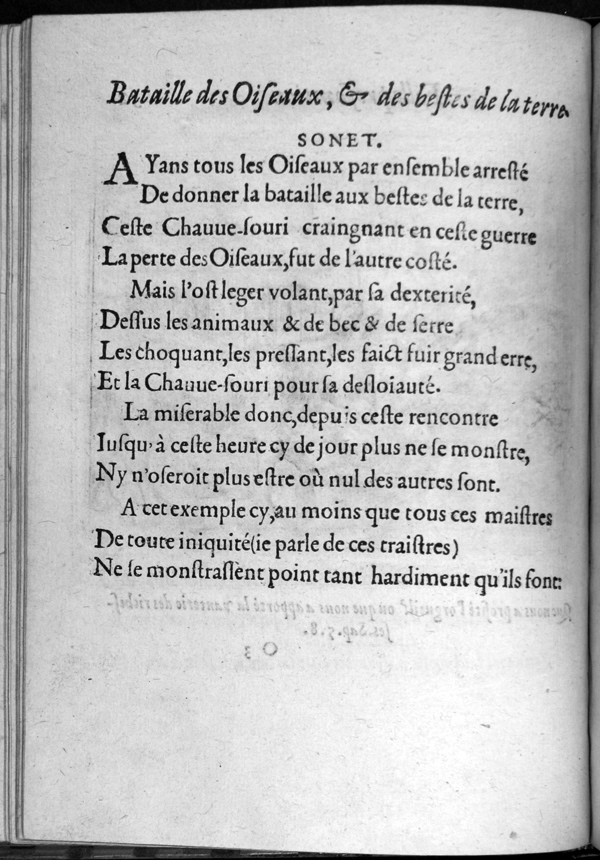 Bataille des Oiſeaux, & des beſtes de la terre.
SONET.
AYans tous les Oiſeaux par enſemble arreſté
De donner la bataille aux beſtes de la terre,
Ceſte Chauue-ſouri craingnant en ceſte guerre
La perte des Oiſeaux, fut de l'autre coſté.
Mais l'oſt leger volant, par ſa dexterité,
Deſſus les animaux & de bec & de ſerre
Les choquant, les preſſant, les faict fuir grand erre,
Et la Chauue-ſouri pour ſa deſloiauté.
La miſerable donc, depuis ceſte rencontre
Iuſqu'à ceſte heure cy de jour plus ne ſe monſtre,
Ny n'oſeroit plus eſtre où nul des autres ſont.
A cet exemple cy, au moins que tous ces maiſtres
De toute iniquité (ie parle de ces traiſtres)
Ne ſe monſtraſſent point tant hardiment qu'ils font.
Que nous a profité l'orgueil? ou que nous a apporté la vanterie des richeſ-
ſes. Sap. 5. 8.
O 3